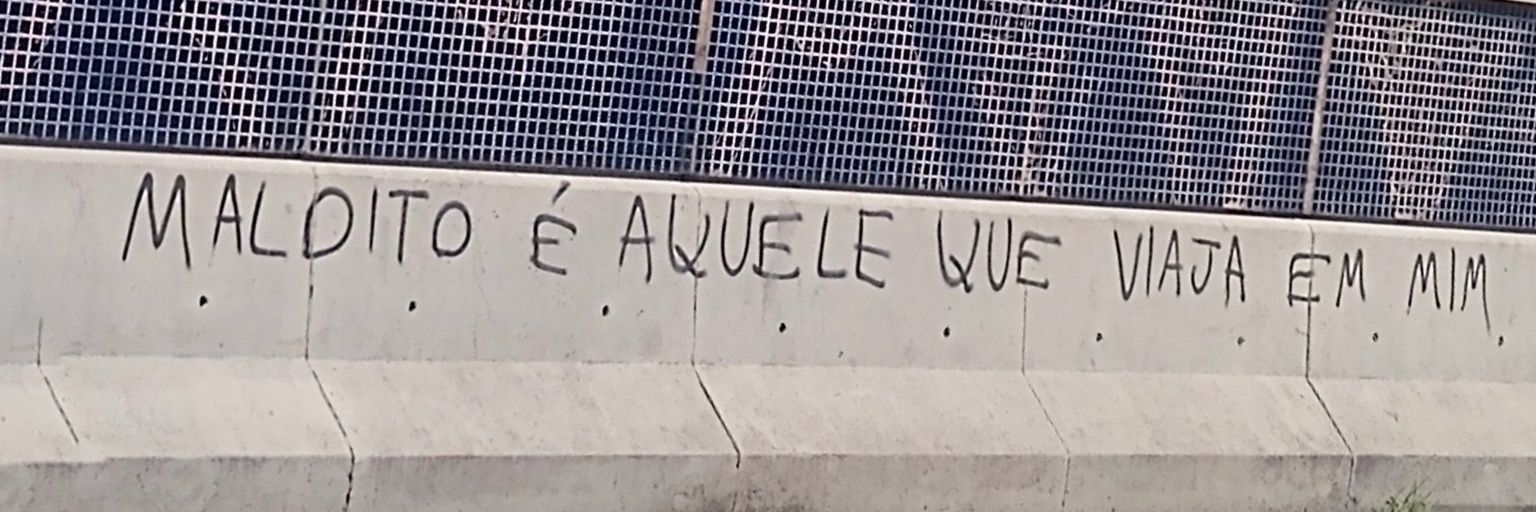 MALDITO É AQUELE QUE VIAJA EM MIM